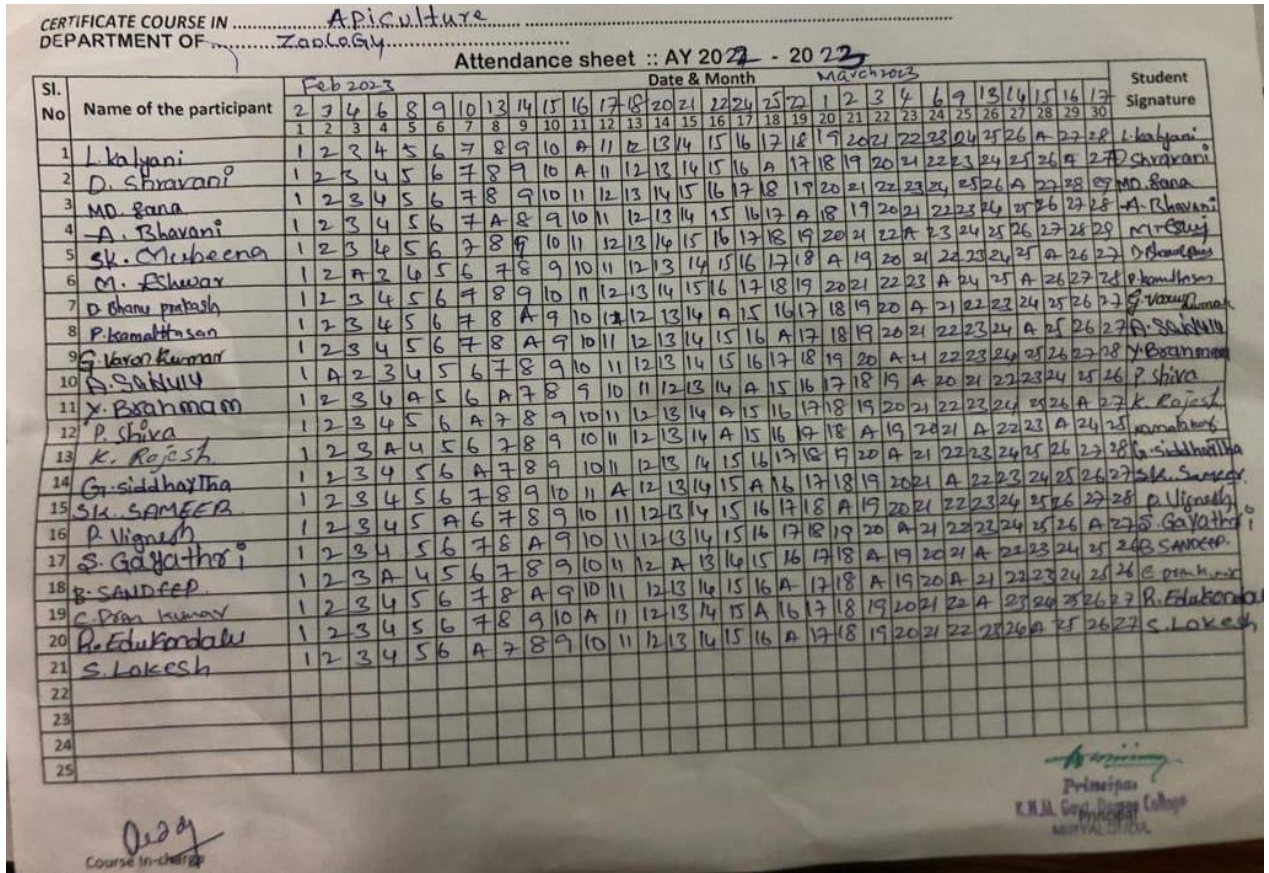 CERTIFICATE COURSE IN ........ Apiculture ........
DEPARTMENT OF ........ ZooloGy ........
Attendance sheet :: AY 2022 - 2023
Sl. No Name of the participant Date & Month Student Signature
Feb 2023 March 2023
2 3 4 6 8 9 10 13 14 15 16 17 18 20 21 22 24 25 27 1 2 3 4 6 9 13 14 15 16 17
1 2 3 4 5 6 7 8 9 10 11 12 13 14 15 16 17 18 19 20 21 22 23 24 25 26 27 28 29 30
1 L.kalyani 1 2 3 4 5 6 7 8 9 10 A 11 12 13 14 15 16 17 18 19 20 21 22 23 24 25 26 A 27 28 L.kalyani
2 D. Shravani 1 2 3 4 5 6 7 8 9 10 A 11 12 13 14 15 16 A 17 18 19 20 21 22 23 24 25 26 A 27 D Shravani
3 MD. Sana 1 2 3 4 5 6 7 8 9 10 11 12 13 14 15 16 17 18 19 20 21 22 23 24 25 26 A 27 28 29 MD. Sana
4 A. Bhavani 1 2 3 4 5 6 7 A 8 9 10 11 12 13 14 15 16 17 A 18 19 20 21 22 23 24 25 26 27 28 A. Bhavani
5 SK. Mubeena 1 2 3 4 5 6 7 8 9 10 11 12 13 14 15 16 17 18 19 20 21 22 A 23 24 25 26 27 28 29
6 M. Eshwar 1 2 A 3 4 5 6 7 8 9 10 11 12 13 14 15 16 17 18 A 19 20 21 22 23 24 25 A 26 27
7 D Bhanu prakash 1 2 3 4 5 6 7 8 9 10 11 12 13 14 15 16 17 18 19 20 21 22 23 A 24 25 A 26 27 28 P.kamalhasan
8 P.KamalHasan 1 2 3 4 5 6 7 8 A 9 10 11 12 13 14 A 15 16 17 18 19 20 A 21 22 23 24 25 26 27 G.Varun kumar
9 G. Varon Kumar 1 2 3 4 5 6 7 8 A 9 10 11 12 13 14 15 16 A 17 18 19 20 21 22 23 24 A 25 26 27 A.Saidulu
10 A.Saidulu 1 A 2 3 4 5 6 7 8 9 10 11 12 13 14 15 16 17 18 19 20 A 21 22 23 24 25 26 27 28 Y.Brahmam
11 Y. Brahmam 1 2 3 4 A 5 6 A 7 8 9 10 11 12 13 14 A 15 16 17 18 19 A 20 21 22 23 24 25 26 P. shiva
12 P. Shiva 1 2 3 4 5 6 A 7 8 9 10 11 12 13 14 A 15 16 17 18 19 20 21 22 23 24 25 26 A 27 K. Rajesh
13 K. Rajesh 1 2 3 A 4 5 6 7 8 9 10 11 12 13 14 A 15 16 17 18 A 19 20 21 A 22 23 A 24 25
14 G.siddharTha 1 2 3 4 5 6 A 7 8 9 10 11 12 13 14 15 16 17 18 19 20 A 21 22 23 24 25 26 27 28 G.siddharTha
15 SK. SAMEER 1 2 3 4 5 6 7 8 9 10 11 A 12 13 14 15 A 16 17 18 19 20 21 A 22 23 24 25 26 27 SK. Sameer.
16 P. Vignesh 1 2 3 4 5 A 6 7 8 9 10 11 12 13 14 15 16 17 18 A 19 20 21 22 23 24 25 26 27 28 P. Vignesh
17 S. Gayathri 1 2 3 4 5 6 7 8 A 9 10 11 12 13 14 15 16 17 18 19 20 A 21 22 23 24 25 26 A 27 S. Gayathri
18 B. SANDEEP 1 2 3 A 4 5 6 7 8 9 10 11 12 A 13 14 15 16 17 18 A 19 20 21 A 22 23 24 25 26 B SANDEEP.
19 C.Pran kumar 1 2 3 4 5 6 7 8 A 9 10 11 12 13 14 15 16 A 17 18 A 19 20 A 21 22 23 24 25 26
20 R.Edukondalu 1 2 3 4 5 6 7 8 9 10 A 11 12 13 14 15 A 16 17 18 19 20 21 22 A 23 24 25 26 27 R. Edukondalu
21 S. Lokesh 1 2 3 4 5 6 A 7 8 9 10 11 12 13 14 15 16 A 17 18 19 20 21 22 23 24 A 25 26 27 S. Lokesh
22
23
24
25
Principal
K.N.M. Govt. Degree College
Principal
MIRYALGUDA
Course In-charge